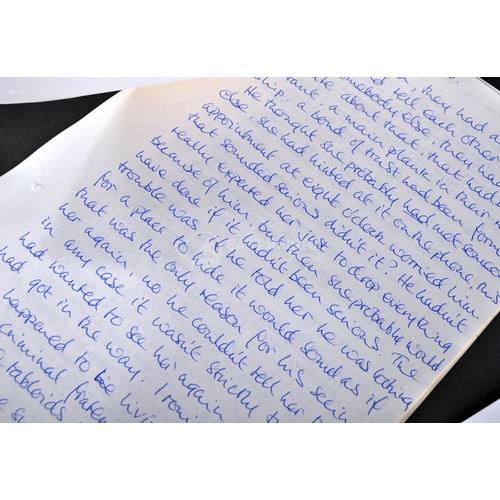 they had
tell each other
somebody else, they had
quite about that. that had
want a main plank in their
ship: a bond of trust had been formed
He thought she probably had met someone
else - she had hinted at it on the phone. The
appointment at eight o'clock worried him
that sounded serious didn't it? He hadn't
really expected her just to drop everything
because of him but then she probably would
have done if it hadn't been serious. The
trouble was, if he told her he was looking
for a place to hide it would sound as if
that was the only reason for his seein
her again, no he couldn't tell her t
in any case it wasn't strictly t
had wanted to see her again
had got in the way. Ironi
happened to be livi
criminal frater
tabloids